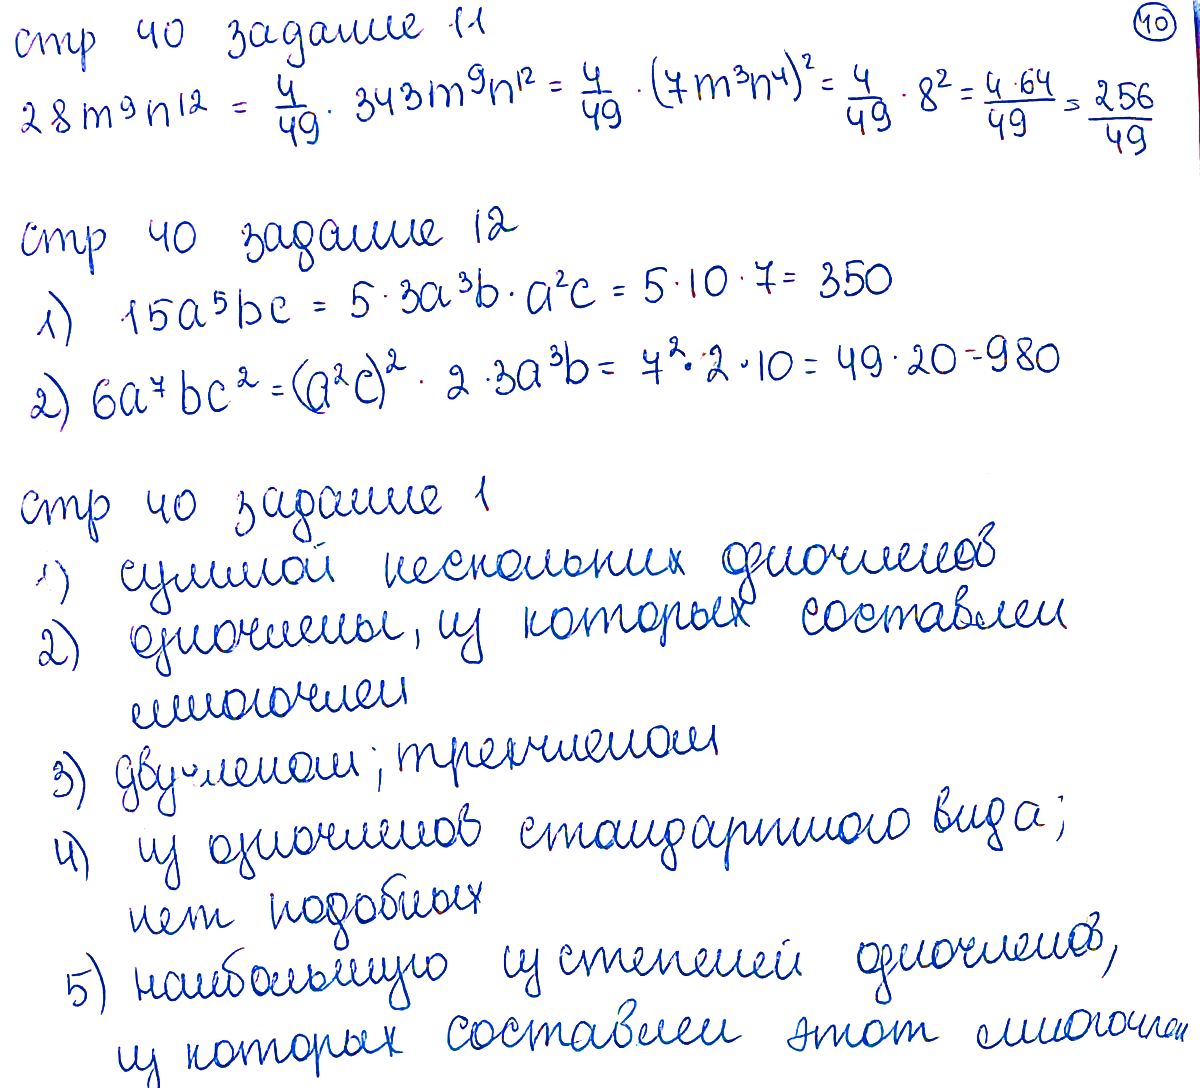 10
стр 40 задание 11
28m⁹n¹² = 4/49 · 343m⁹n¹² = 4/49 · (7m³n⁴)² = 4/49 · 8² = 4·64/49 = 256/49
стр 40 задание 12
1) 15a⁵bc = 5·3a³b·a²c = 5·10·7= 350
2) 6a⁷bc² = (a²c)² · 2·3a³b= 7²·2·10= 49·20=980
стр 40 задание 1
1) суммой нескольких одночленов
2) одночлены, из которых составлен
многочлен
3) двучленом; трехчленом
4) из одночленов стандартного вида;
нет подобных
5) наибольшую из степеней одночленов,
из которых составлен этот многочлен